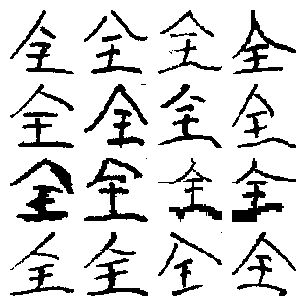 全全全全
全全全全
全全全全
全全全全